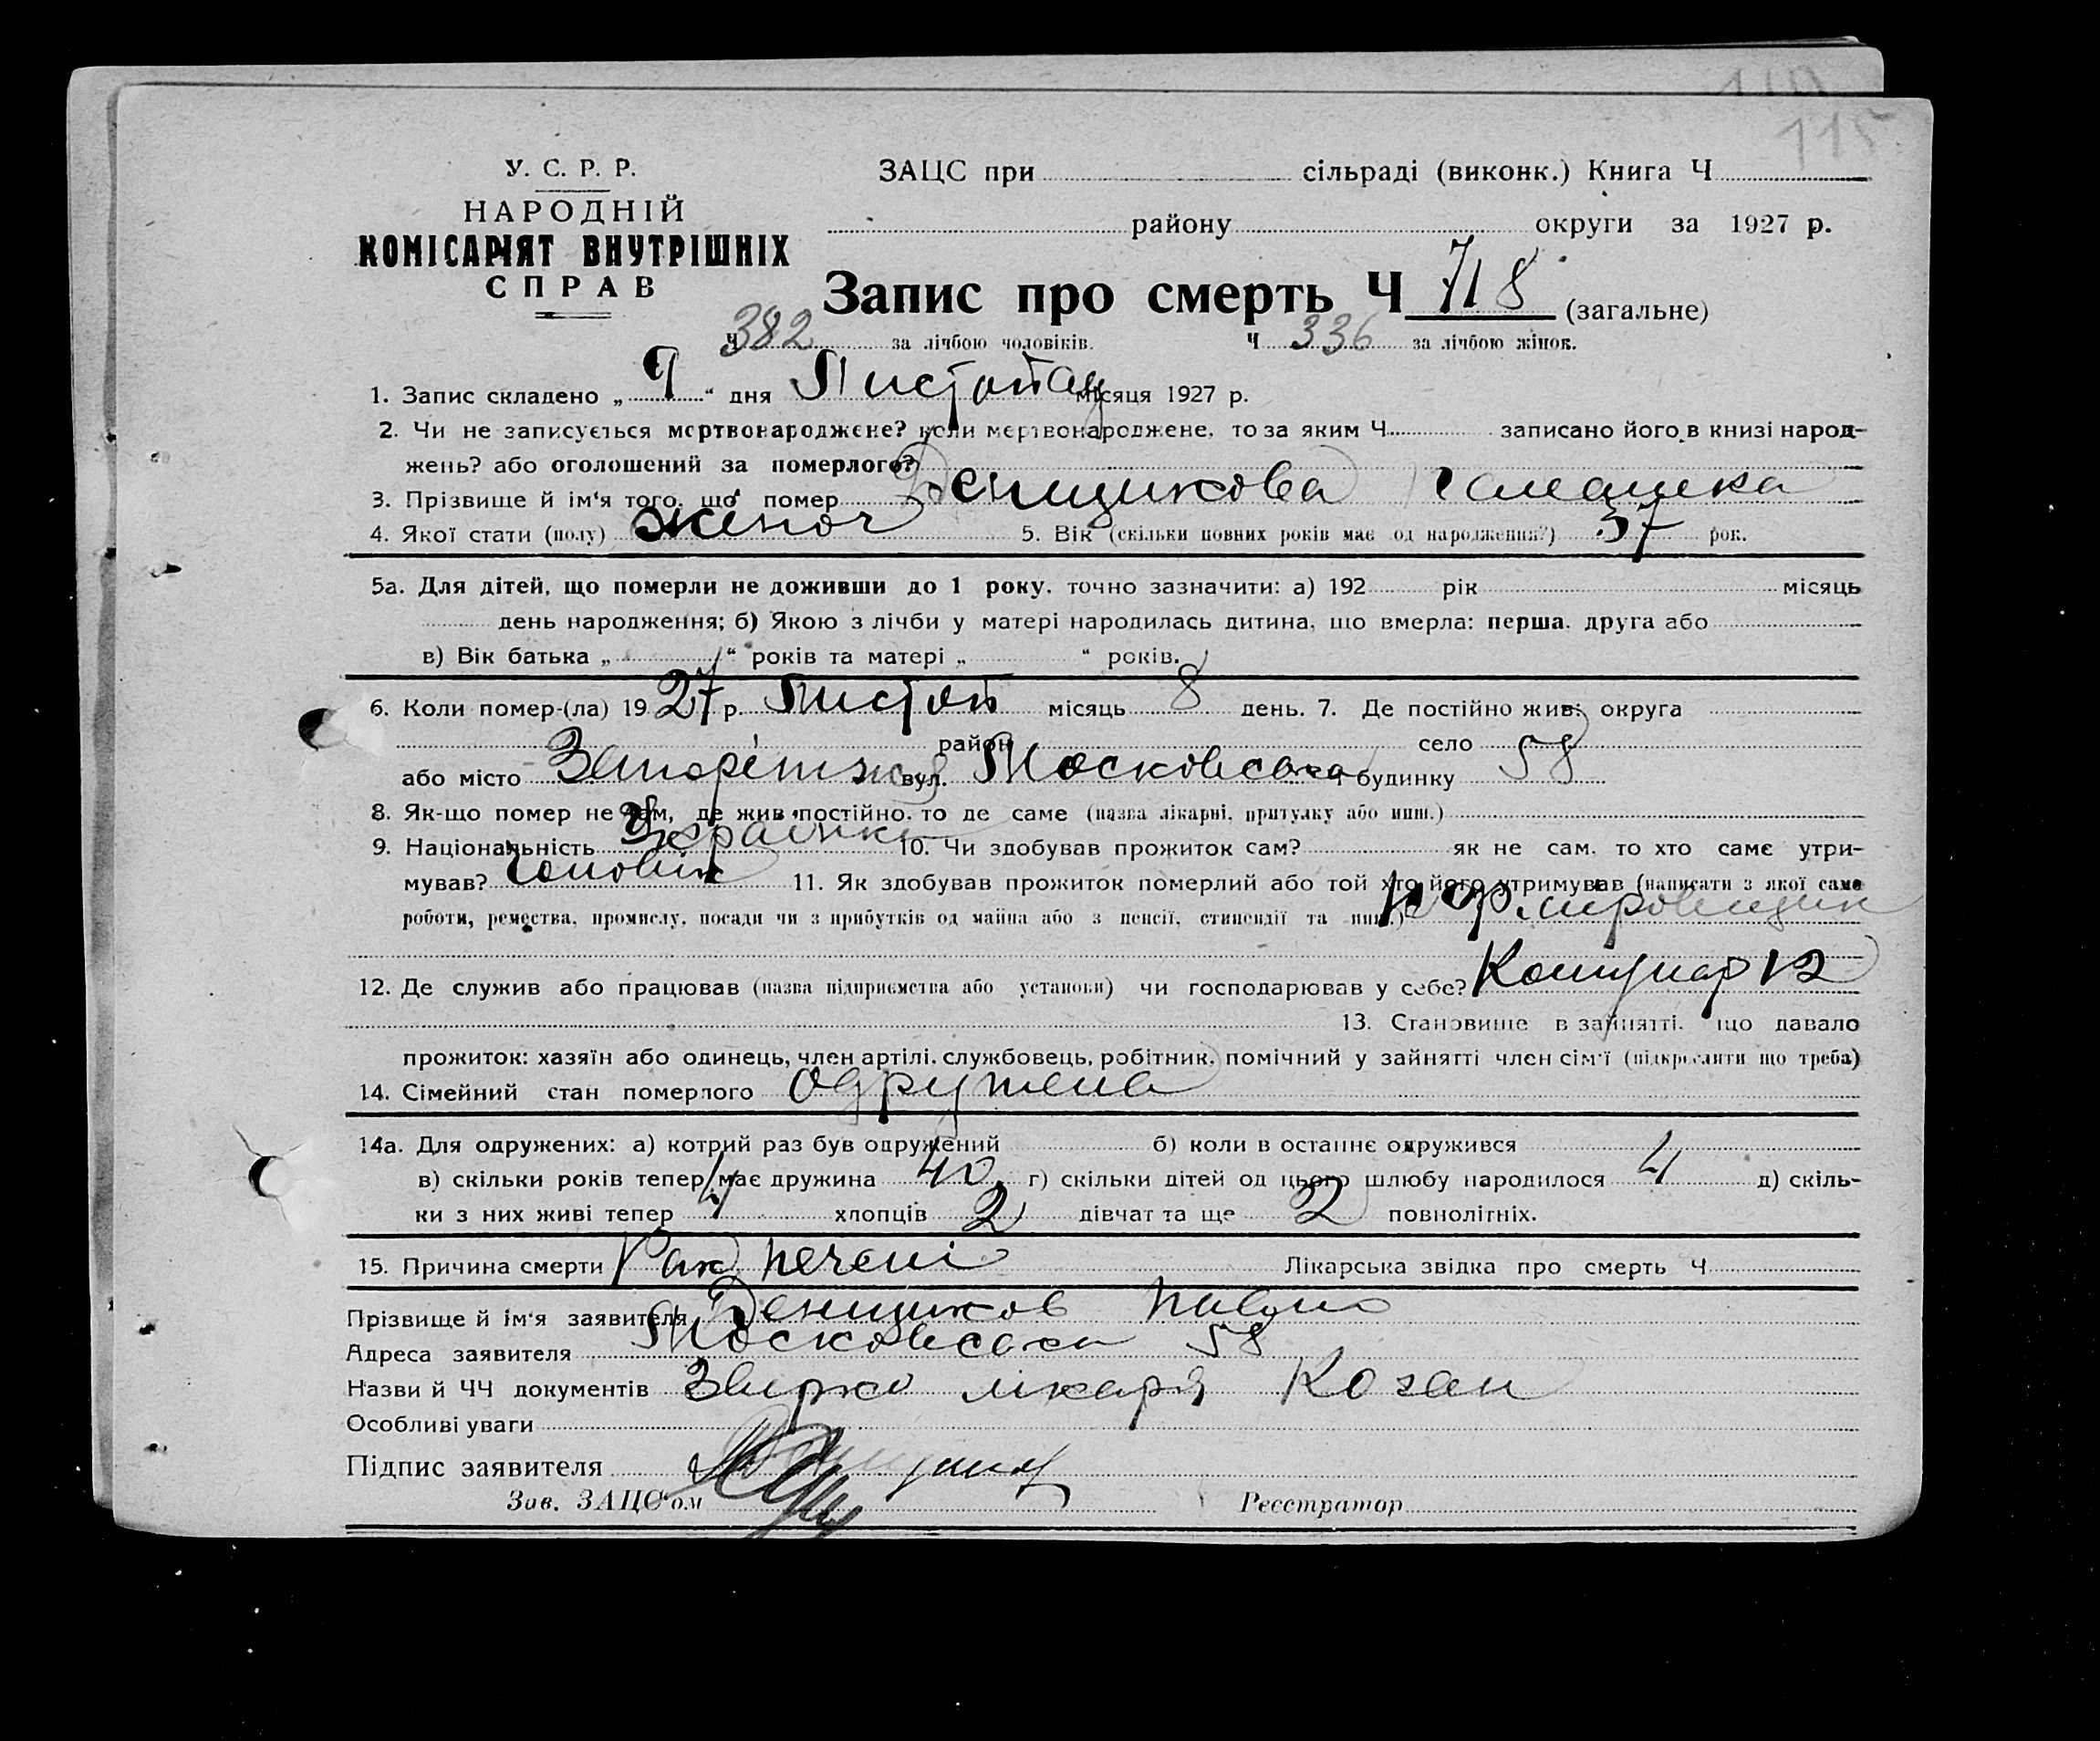 115
У. С. Р. Р.
НАРОДНІЙ
КОМІСАРІЯТ ВНУТРІШНІХ
СПРАВ
ЗАЦС при сільраді (виконк.) Книга Ч
району округи за 1927 р.
Запис про смерть Ч 718 (загальне)
Ч 382 за лічбою чоловіків. Ч 336 за лічбою жінок.
1. Запис складено „ 9 “ дня Листопад місяця 1927 р.
2. Чи не записується мертвонароджене? коли мертвонароджене, то за яким Ч записано його в книзі народ-
жень? або оголошений за померлого?
3. Прізвище й ім‘я того, що помер Денщикова
4. Якої стати (полу) жіноч 5. Вік (скільки повних років має од народження?) 37 рок.
5а. Для дітей, що померли не доживши до 1 року, точно зазначити: а) 192 рік місяць
день народження; б) Якою з лічби у матері народилась дитина, що вмерла: перша, друга або
в) Вік батька „ “ років та матері „ “ років.
6. Коли помер-(ла) 1927 р. Листоп місяць 8 день. 7. Де постійно жив: округа
район село
або місто вул. Московська Ч будинку 58
8. Як-що помер не там, де жив постійно, то де саме (назва лікарні, притулку або инш.)
9. Національність Українка 10. Чи здобував прожиток сам? як не сам, то хто саме утри-
мував? Чоловік 11. Як здобував прожиток померлий або той хто його утримував (написати з якої саме
роботи, ремества, промислу, посади чи з прибутків од майна або з пенсії, стипендії та инш.)
12. Де служив або працював (назва підприємства або установи) чи господарював у себе? Комунар
13. Становище в зайнятті, що давало
прожиток: хазяїн або одинець, член артілі, службовець, робітник, помічний у зайнятті член сім‘ї (підкреслити що треба)
14. Сімейний стан померлого одружена
14а. Для одружених: а) котрий раз був одружений б) коли в останнє одружився
в) скільки років тепер має дружина 40 г) скільки дітей од цього шлюбу народилося 4 д) скіль-
ки з них живі тепер 4 хлопців 2 дівчат та ще 2 повнолітніх.
15. Причина смерти Рак печені Лікарська звідка про смерть Ч
Прізвище й ім‘я заявителя Денщиков Павло
Адреса заявителя Московська 58
Назви й ЧЧ документів лікаря Коган
Особливі уваги
Підпис заявителя
Зав. ЗАЦС‘ом Реєстратор